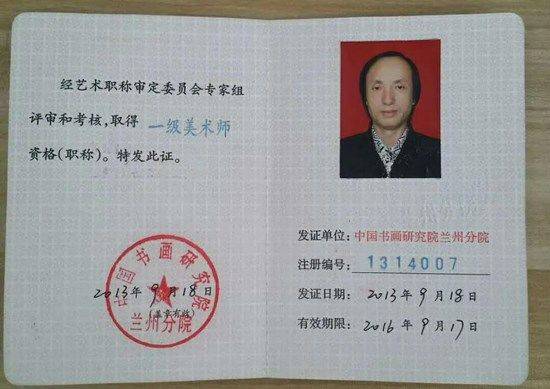 经艺术职称审定委员会专家组
评审和考核,取得 一级美术师
资格(职称)。特发此证。
中国书画研究院
2013年9月18日
(盖章有效)
兰州分院
发证单位:中国书画研究院兰州分院
注册编号:1314007
发证日期:2013年9月18日
有效期限:2016年9月17日